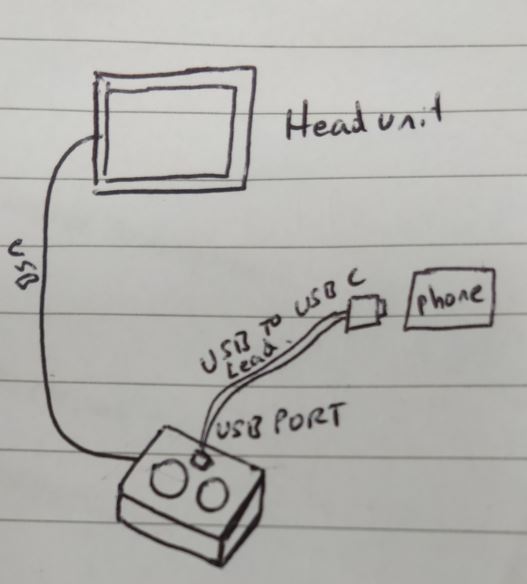 Head unit
USB
USB TO USB C
Lead.
phone
USB PORT